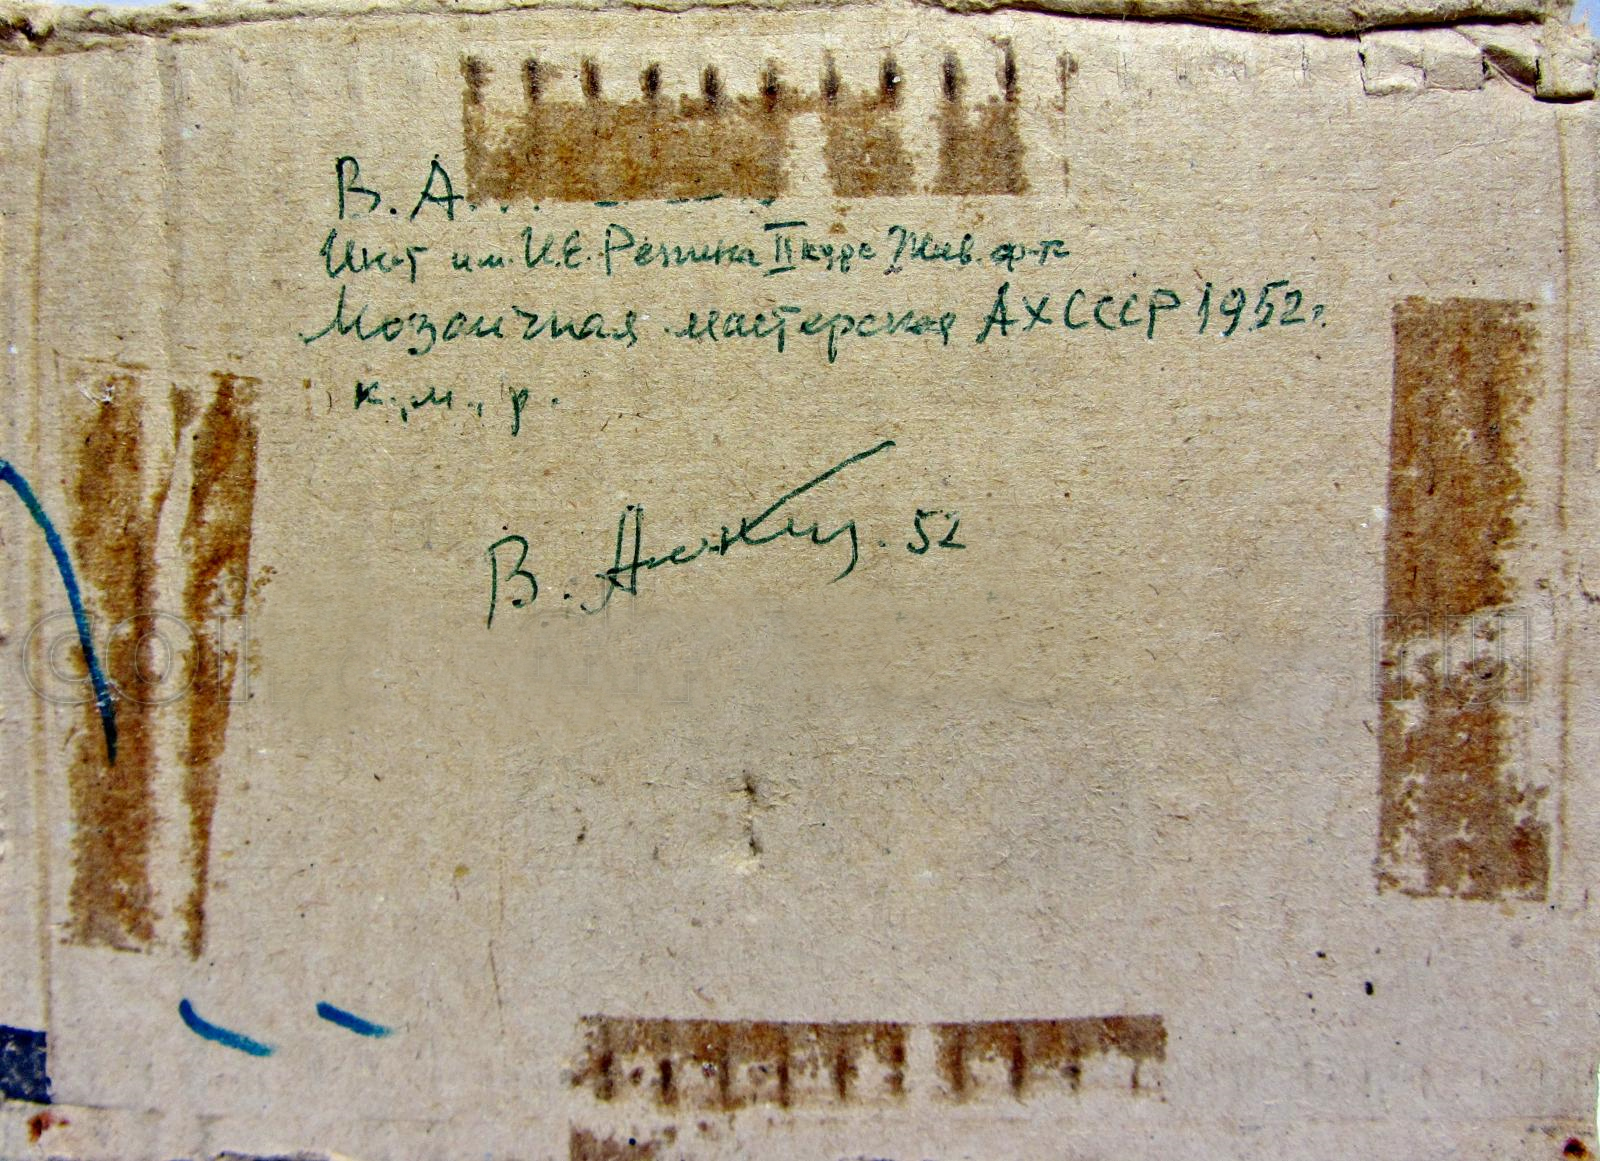 В. А
Инст им. И.Е. Репина II курс Жив. ф-т
Мозаичная мастерская АХ СССР 1952г.
к., м., р.
В. 52
coll ru